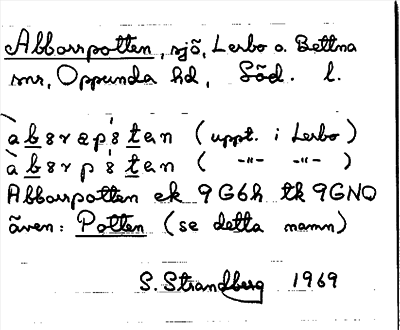 Abborrpotten, sjö, Lerbo o. Bettna
snr, Oppunda hd, Söd. l.
àbɜrapɜ́tan (uppt. i Lerbo)
àbɜrpɜ́tan ( -"- -"- )
Abborrpotten ek 9G6h tk 9GNO
även: Potten (se detta namn)
S. Strandberg 1969